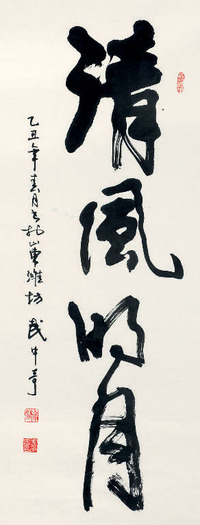 清風明月
乙丑年春月書於山東濰坊 武中奇